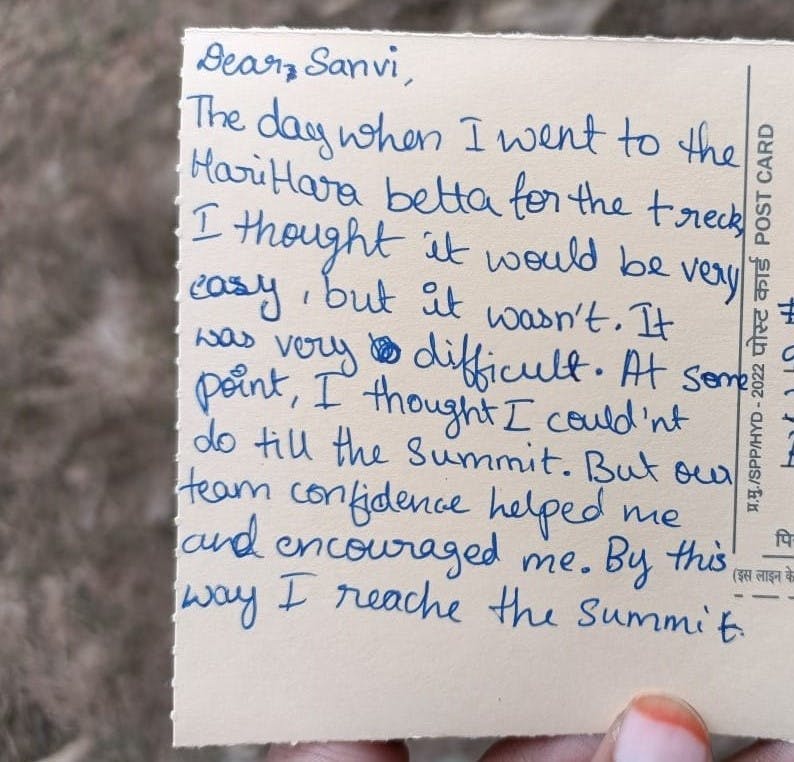 Dear, Sanvi,
The day when I went to the
HariHara betta for the treck,
I thought it would be very
easy, but it wasn't. It
was very difficult. At some
point, I thought I could'nt
do till the summit. But our
team confidence helped me
and encouraged me. By this
way I reache the summit.
प्र.मु./SPP/HYD - 2022 पोस्ट कार्ड POST CARD
पि
(इस लाइन के